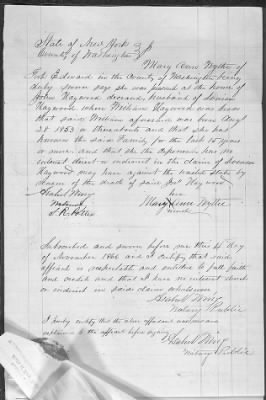 State of New York
County of Washington } ss
Mary Ann Wythe of
Fort Edward in the County of Washington being
duly sworn says she was present at the home of
John Haywood deceased, husband of
Haywood when William Haywood was born
that said William aforesaid was born Aug
28 1853 or thereabouts and that she has
known the said Family for the last 15 years
or more and that she the deponent has no
interest direct or indirect in the claim of
Haywood may have against the United States by
reason of the death of said Jno Haywood
Witness
her
Mary Ann Wythe
mark
Subscribed and sworn before me this 4 day
of November 1866 and I certify that said
affiant is respectable and entitled to full faith
and credit and that I have no interest direct
or indirect in said claim whatsoever
Notary Public
I hereby certify that the above affidavit was made
known to the affiant before signing
Notary Public